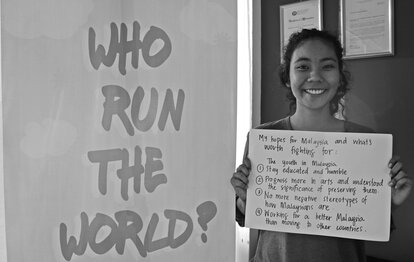 WHO
RUN
THE
WORLD?
My hopes for Malaysia and what's
worth fighting for:
The youth in Malaysia
① Stay educated and humble
② Progress more in arts and understand
the significance of preserving them
③ No more negative stereotypes of
how Malaysians are
④ Working for a better Malaysia
than moving to other countries.